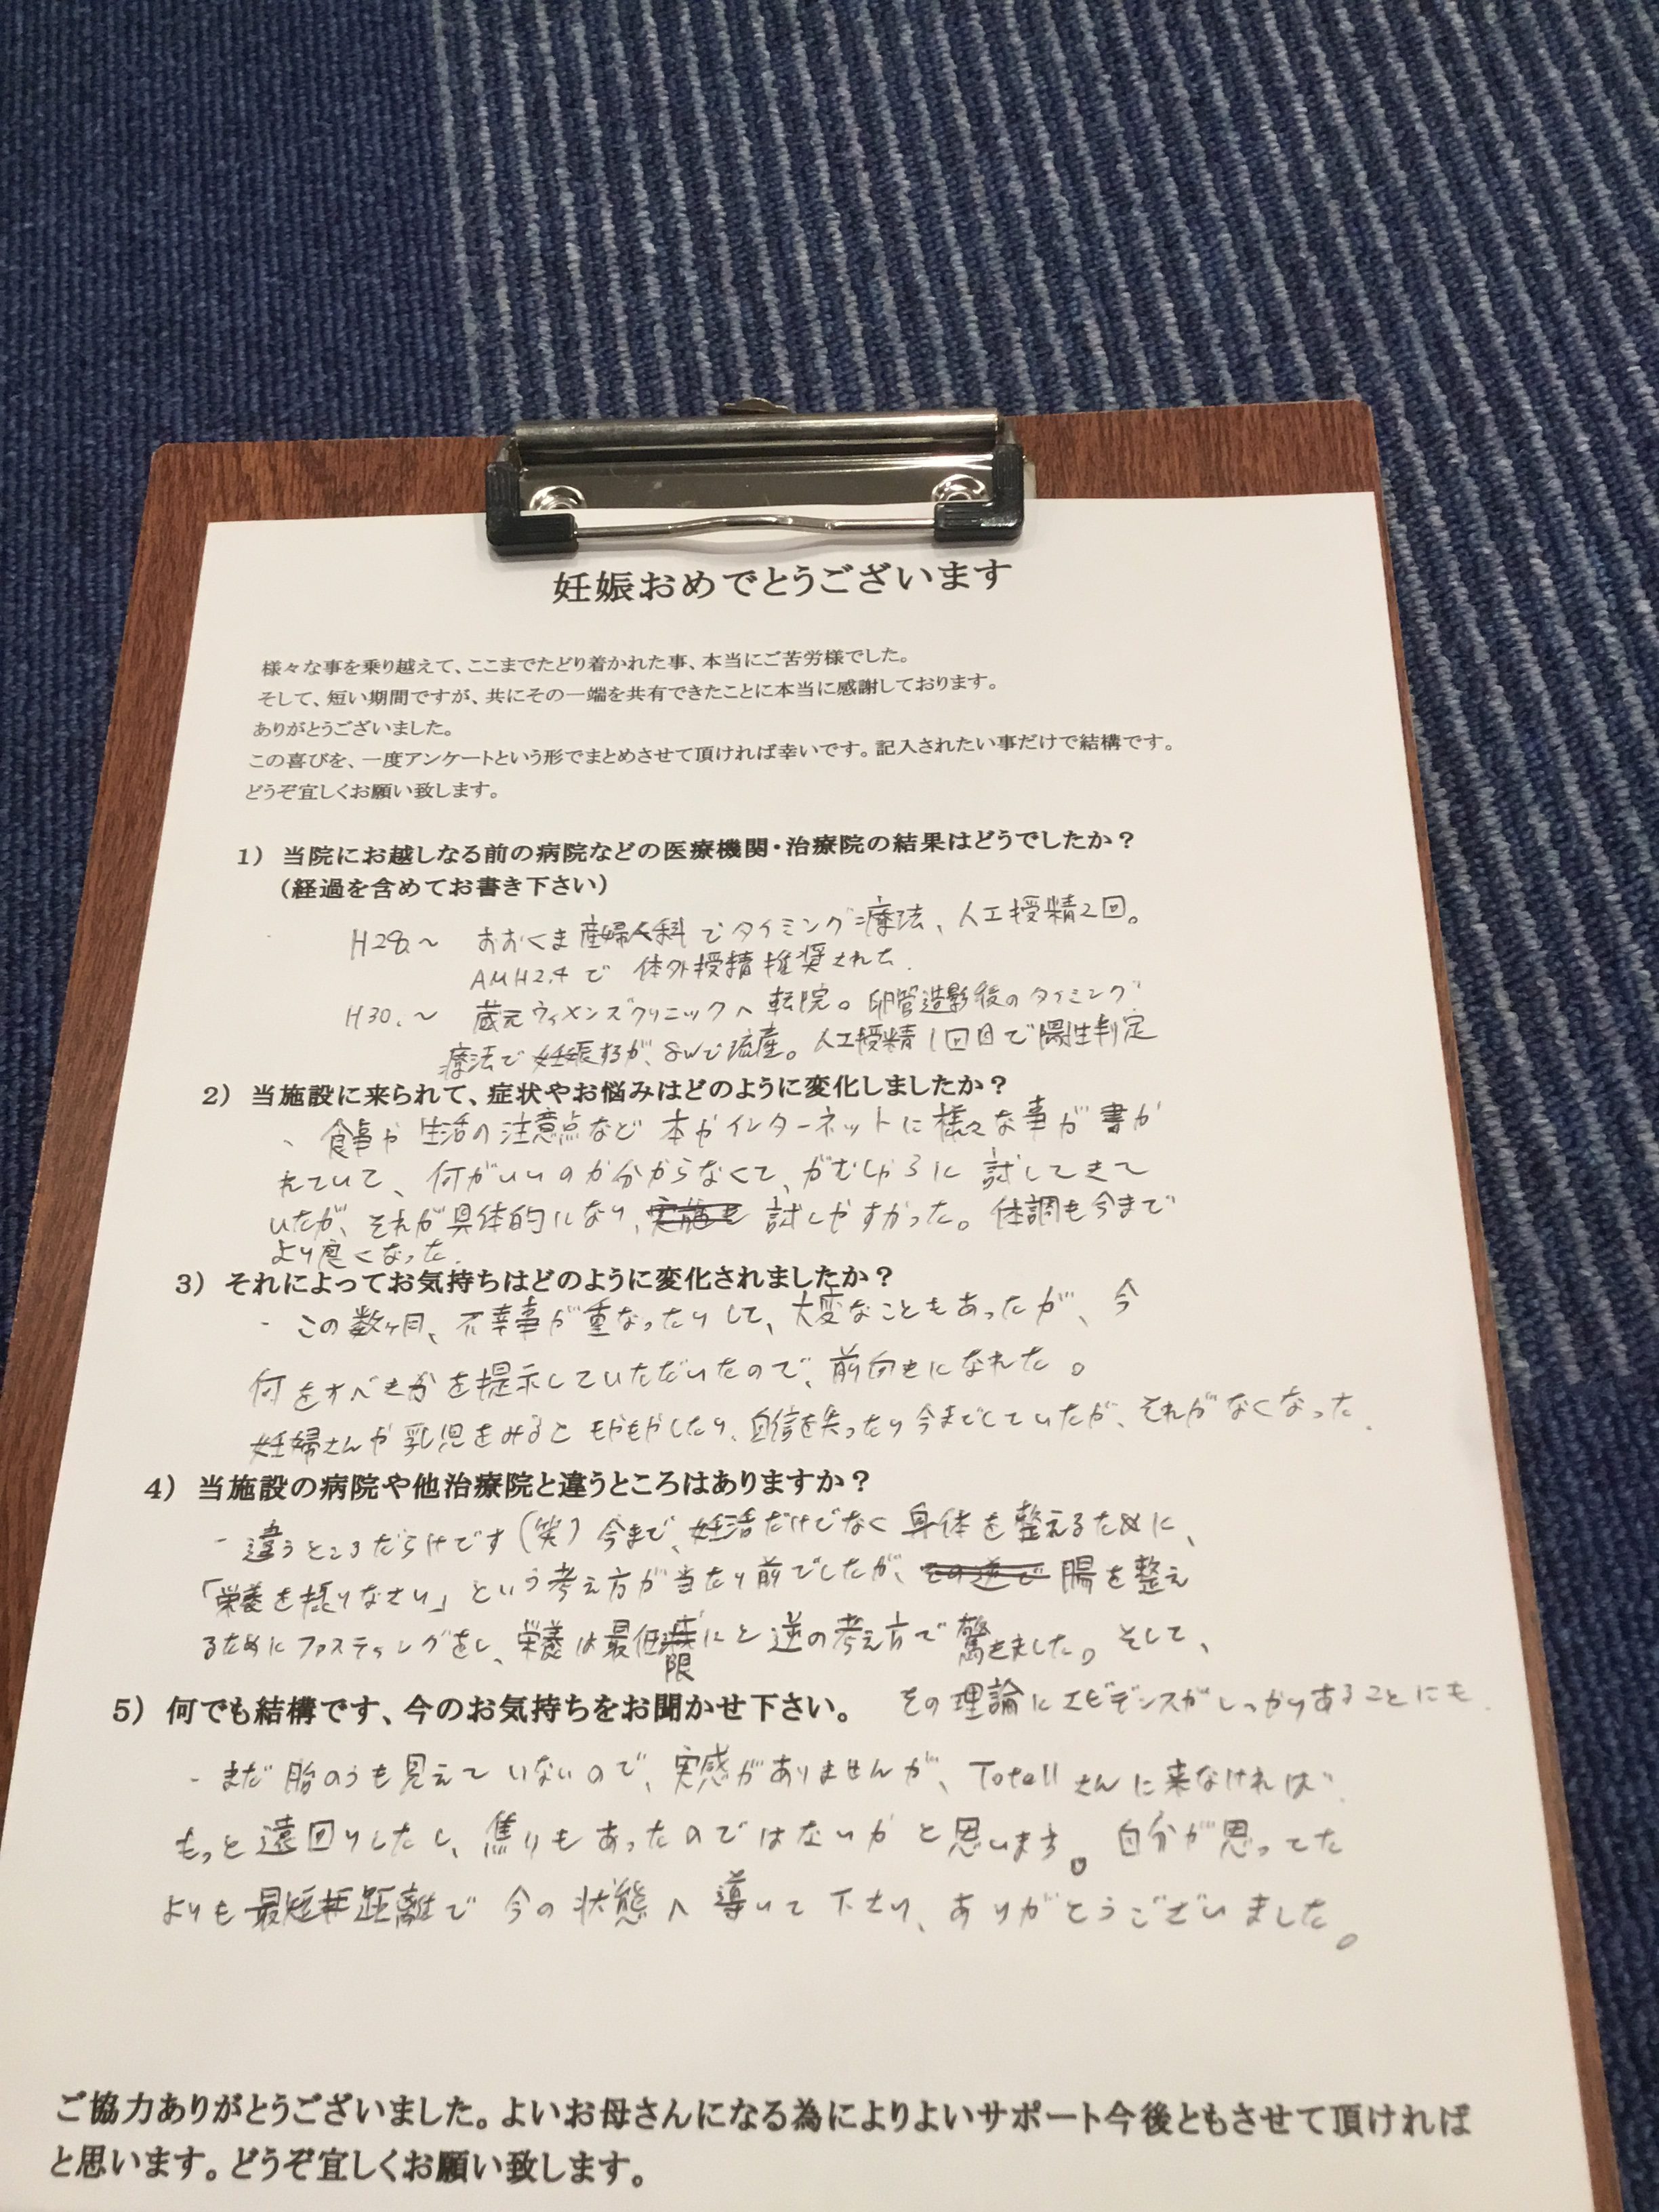 妊娠おめでとうございます
様々な事を乗り越えて、ここまでたどり着かれた事、本当にご苦労様でした。
そして、短い期間ですが、共にその一端を共有できたことに本当に感謝しております。
ありがとうございました。
この喜びを、一度アンケートという形でまとめさせて頂ければ幸いです。記入されたい事だけで結構です。
どうぞ宜しくお願い致します。
1) 当院にお越しなる前の病院などの医療機関・治療院の結果はどうでしたか？
（経過を含めてお書き下さい）
H28.～ おおくま産婦人科でタイミング療法、人工授精2回。
AMH2.4で 体外授精推奨された.
H30.～ 蔵元ウィメンズクリニックへ転院。卵管造影後のタイミング
療法で妊娠するが、8wで流産。人工授精1回目で陽性判定
2) 当施設に来られて、症状やお悩みはどのように変化しましたか？
、食事や生活の注意点など本やインターネットに様々な事が書か
れていて、何がいいのか分からなくて、がむしゃらに試してきて
いたが、それが具体的になり、試しやすかった。体調も今まで
より良くなった.
3) それによってお気持ちはどのように変化されましたか？
- この数ヶ月、不幸事が重なったりして、大変なこともあったが、今
何をすべきかを提示していただいたので、前向きになれた。
妊婦さんや乳児をみるともやもやしたり、自信を失ったり今までしていたが、それがなくなった.
4) 当施設の病院や他治療院と違うところはありますか？
- 違うところだらけです（笑）今まで、妊活だけでなく身体を整えるために、
「栄養を摂りなさい」という考え方が当たり前でしたが、腸を整え
るためにファスティングをし、栄養は最低限にと逆の考え方で驚きました。そして、
5) 何でも結構です、今のお気持ちをお聞かせ下さい。 その理論にエビデンスがしっかりあることにも.
- まだ胎のうも見えていないので、実感がありませんが、Totallさんに来なければ
もっと遠回りしたし、焦りもあったのではないかと思います。自分が思ってた
よりも最短距離で今の状態へ導いて下さり、ありがとうございました。
ご協力ありがとうございました。よいお母さんになる為によりよいサポート今後ともさせて頂ければ
と思います。どうぞ宜しくお願い致します。